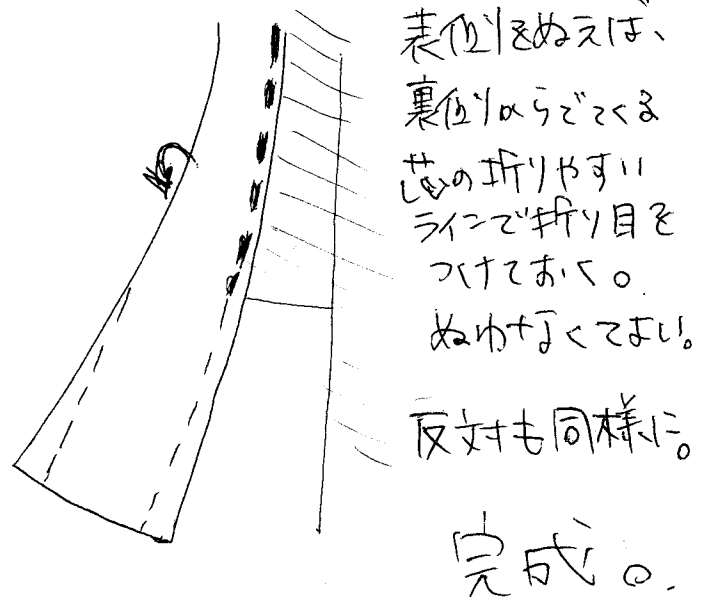 表側をぬえば、
裏側からでてくる
芯の折りやすい
ラインで折り目を
つけておく。
ぬわなくてよい。
反対も同様に。
完成。